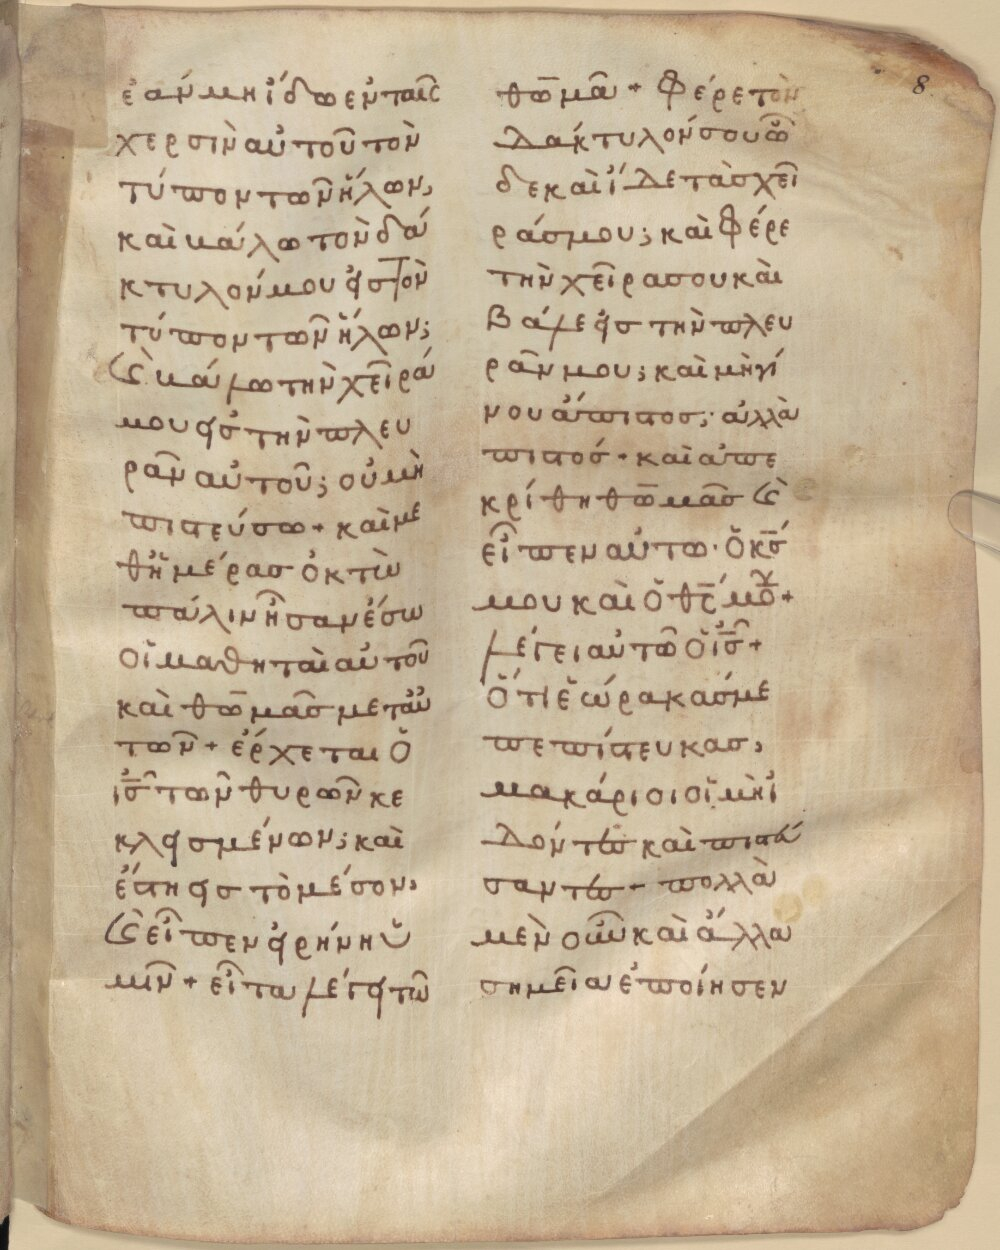 8
ἐὰν μὴ ἴδω ἐν ταῖς
χερσὶν αὐτοῦ τὸν
τύπον τῶν ἥλων,
καὶ βάλω τὸν δά
κτυλόν μου εἰς τὸν
τύπον τῶν ἥλων;
ϗ βάλω τὴν χεῖρά
μου εἰς τὴν πλευ
ρὰν αὐτοῦ; οὐ μὴ
πιστεύσω + καὶ με
θ' ἡμέρας ὀκτὼ
πάλιν ἦσαν ἔσω
οἱ μαθηταὶ αὐτοῦ
καὶ θωμᾶς μετ' αὐ
τῶν + ἔρχεται ὁ
ἰς τῶν θυρῶν κε
κλεισμένων; καὶ
ἔστη εἰς τὸ μέσον,
ϗ εἶπεν εἰρήνη ὑ
μῖν + εἶτα λέγει τῶ
θωμᾶ + Φέρε τὸν
δάκτυλόν σου ὧ
δε καὶ ἴδε τὰς χεῖ
ράς μου; καὶ φέρε
τὴν χεῖρα σου καὶ
βάλε εἰς τὴν πλευ
ράν μου; καὶ μὴ γί
νου ἄπιστος; ἀλλὰ
πιστός + καὶ ἀπε
κρίθη θωμᾶς ϗ
εἶπεν αὐτω · ὁ κς
μου καὶ ὁ θς μου +
λέγει αὐτῶ ὁ ἰς +
ὅτι ἑώρακάς με
πεπίστευκας,
μακάριοι οἱ μὴ ἰ
δόντες καὶ πιστεύ
σαντες + πολλὰ
μὲν οὖν καὶ ἄλλα
σημεῖα ἐποίησεν